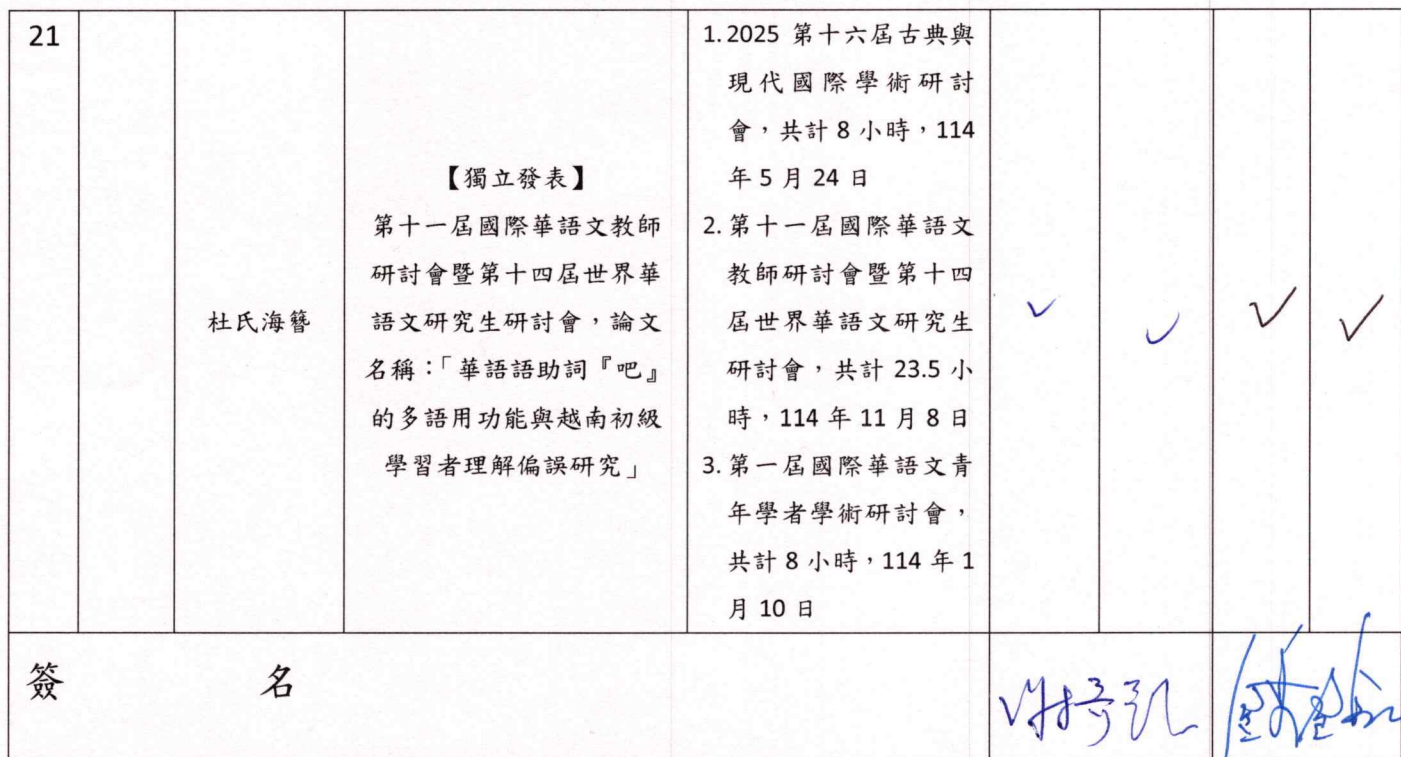 21
杜氏海簪
【獨立發表】
第十一屆國際華語文教師
研討會暨第十四屆世界華
語文研究生研討會,論文
名稱:「華語語助詞『吧』
的多語用功能與越南初級
學習者理解偏誤研究」
1. 2025 第十六屆古典與
現代國際學術研討
會,共計 8 小時,114
年 5 月 24 日
2. 第十一屆國際華語文
教師研討會暨第十四
屆世界華語文研究生
研討會,共計 23.5 小
時,114 年 11 月 8 日
3. 第一屆國際華語文青
年學者學術研討會,
共計 8 小時,114 年 1
月 10 日
✓ ✓ ✓ ✓
簽 名